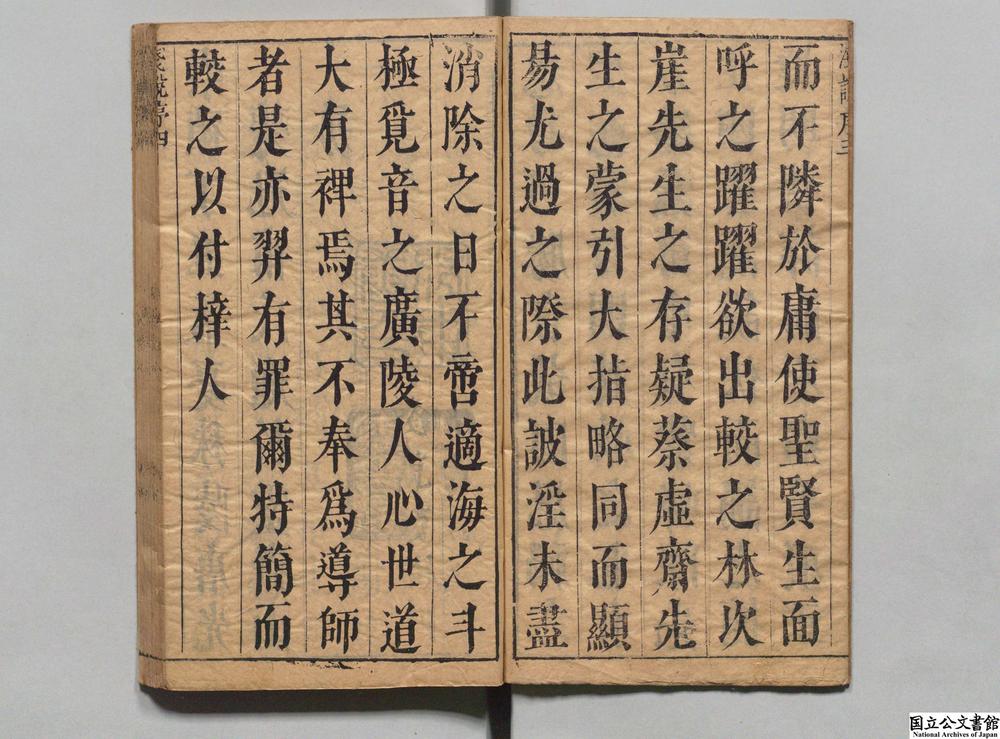 而不隣於庸使聖賢生面
呼之躍躍欲出較之林次
崖先生之存疑蔡虛齋先
生之蒙引大指略同而顯
昜尤過之際此詖淫未盡
消除之日不啻適海之斗
極覓音之廣陵人心世道
大有裨焉其不奉為導師
者是亦羿有罪爾特簡而
較之以付梓人
淺說序四
国立公文書館
National Archives of Japan